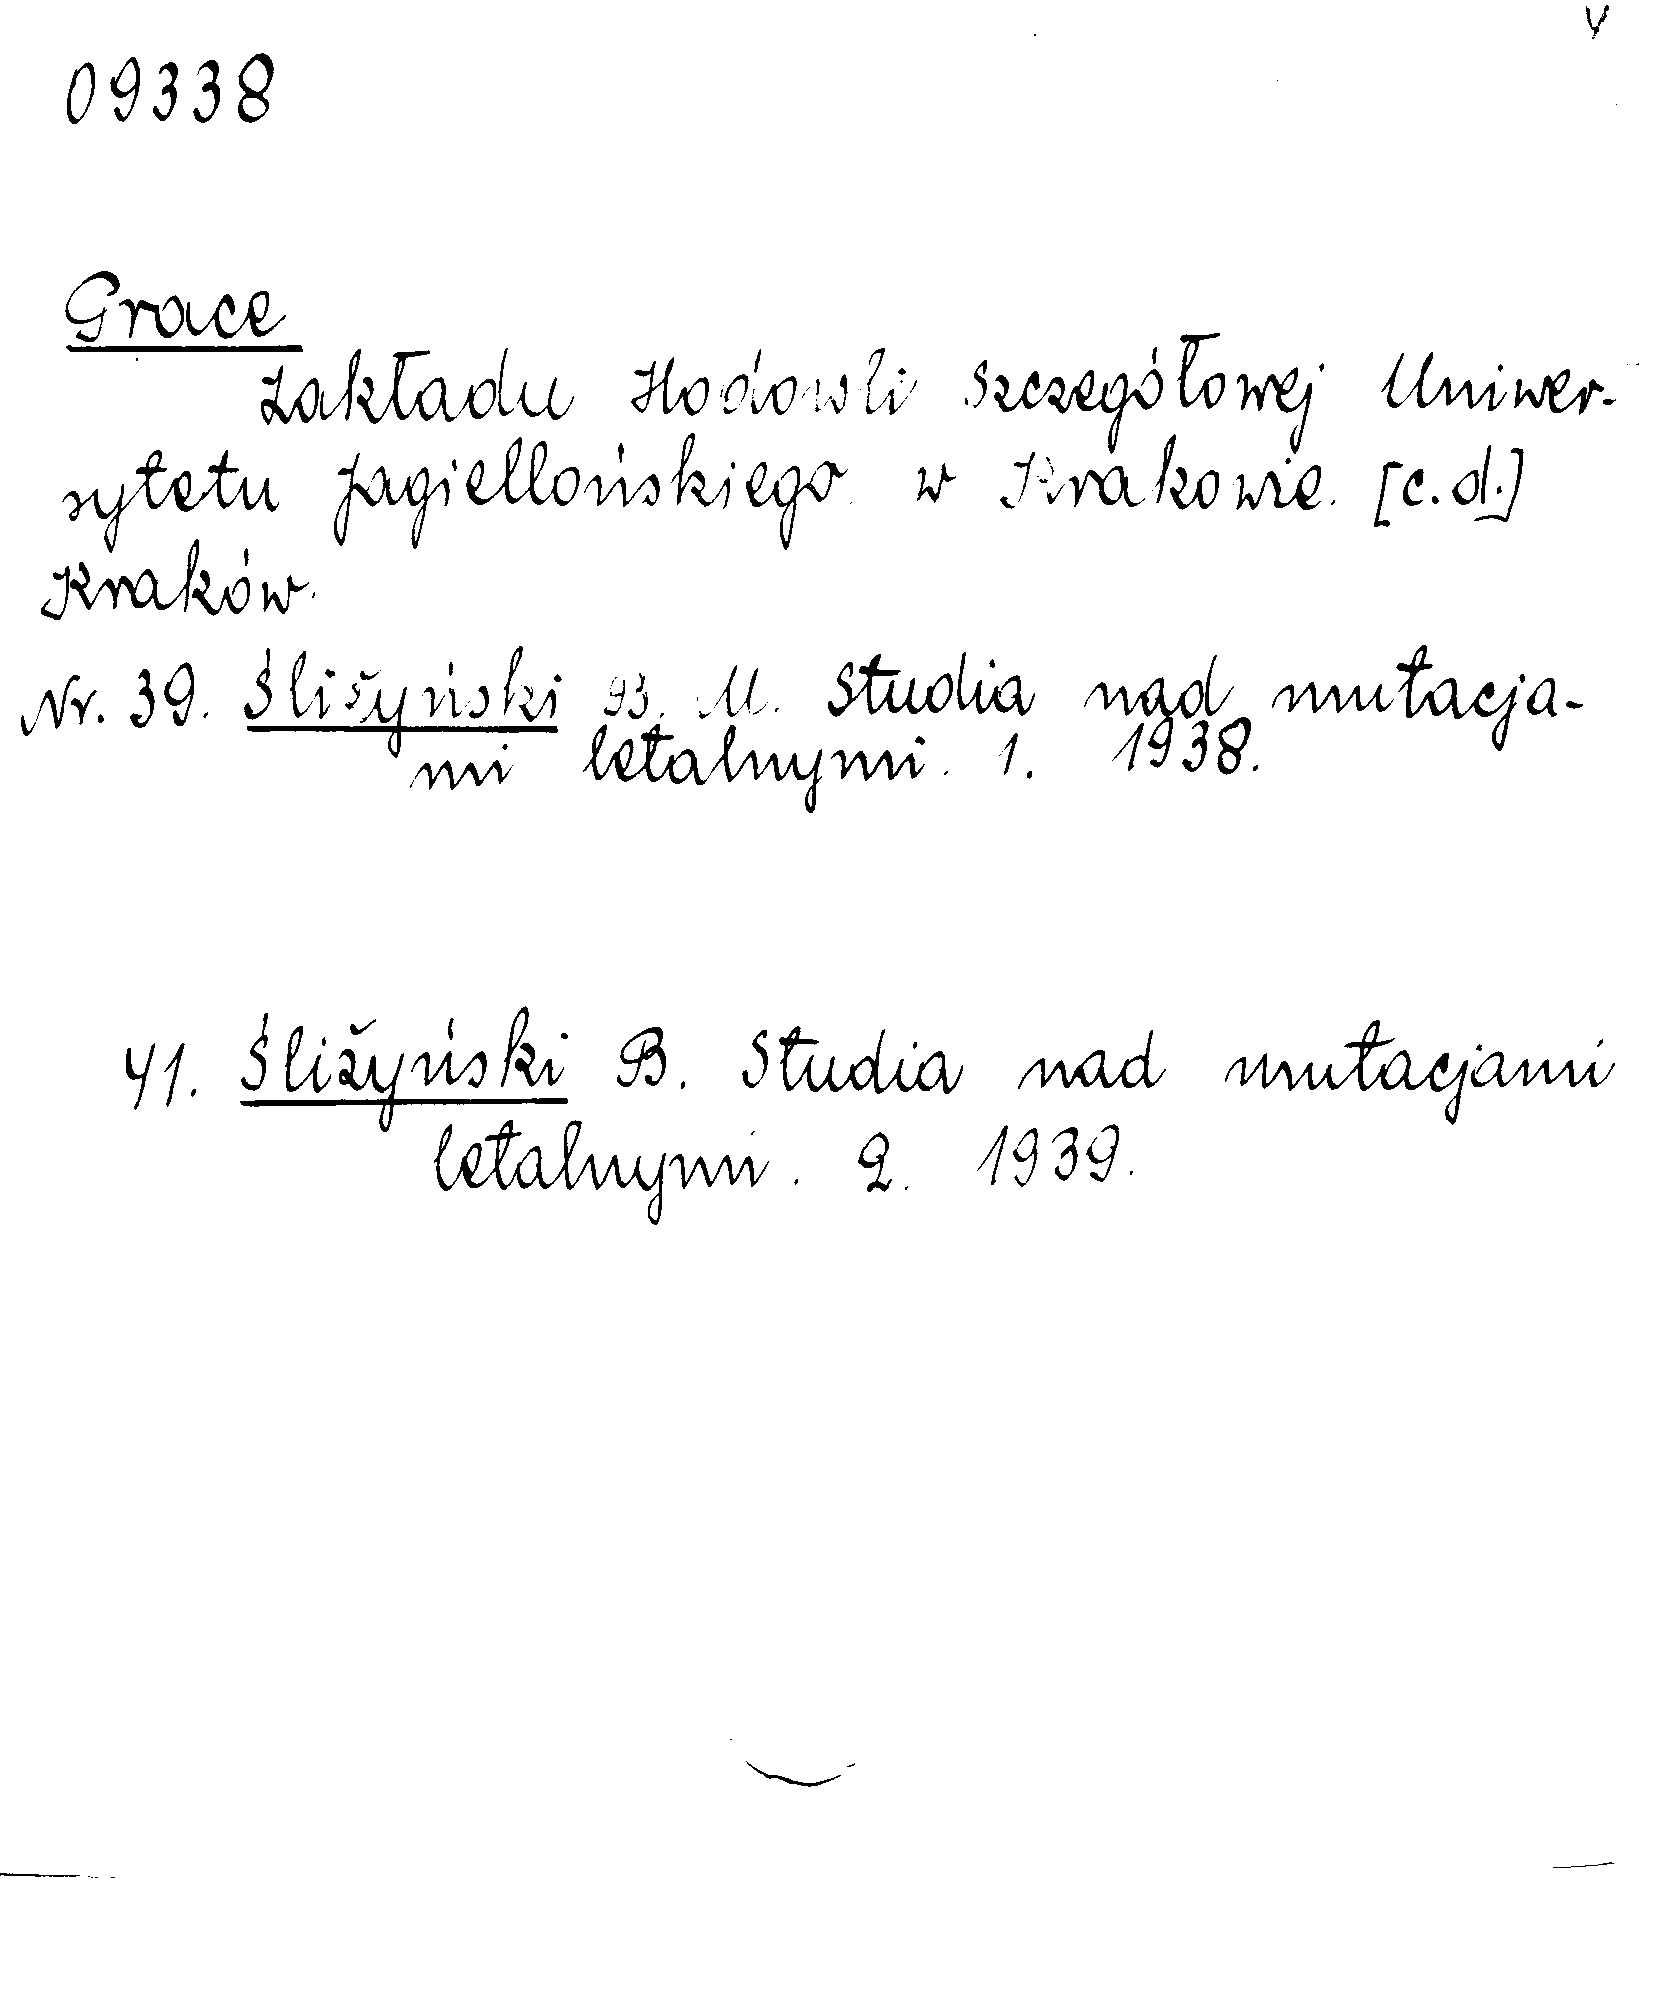 09338
Grace
Zakładu Hodowli Szczegółowej Uniwer-
sytetu Jagiellońskiego w Krakowie. [c.d.]
Kraków.
Nr. 39. Śliżyński B. M. Studia nad mutacja-
mi letalnymi. 1. 1938.
41. Śliżyński B. Studia nad mutacjami
letalnymi. 2. 1939.